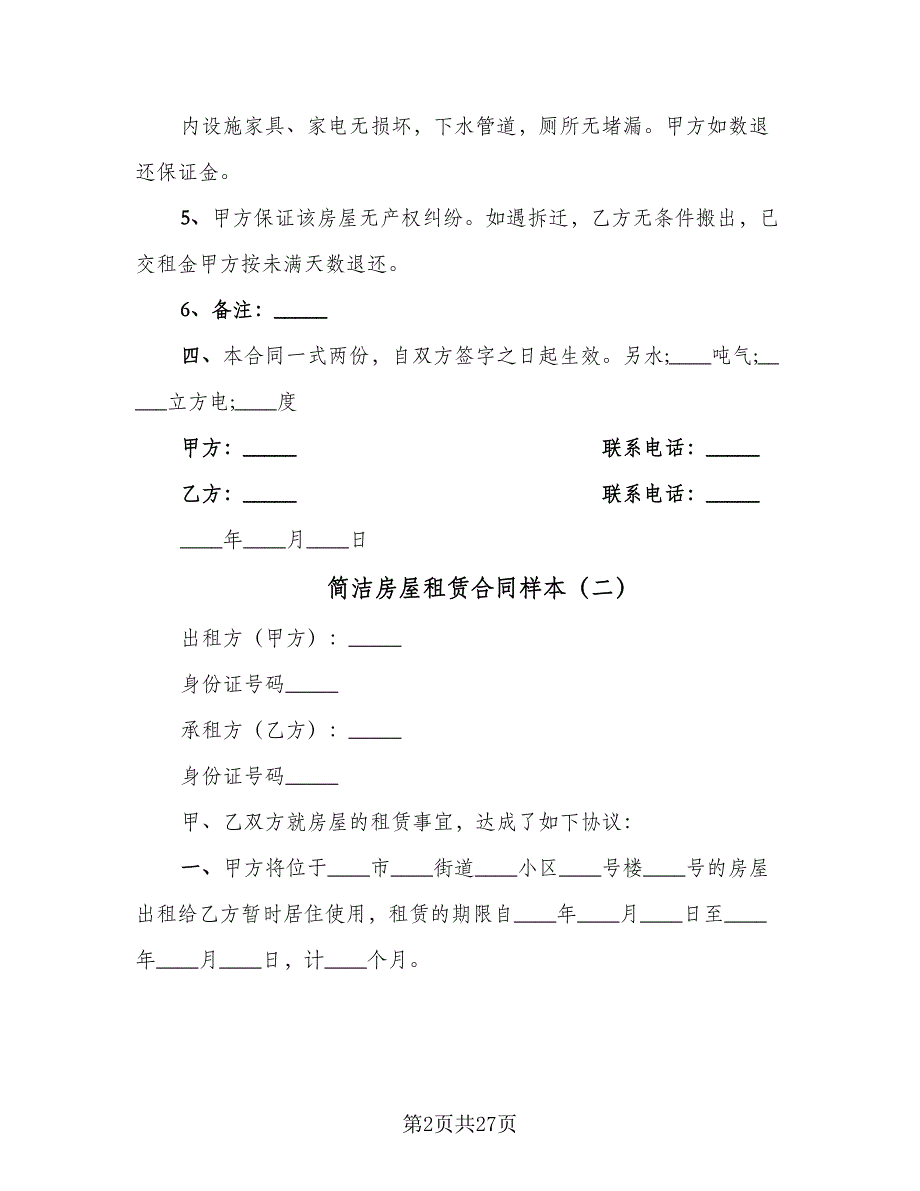 内设施家具、家电无损坏，下水管道，厕所无堵漏。甲方如数退
还保证金。
5、甲方保证该房屋无产权纠纷。如遇拆迁，乙方无条件搬出，已
交租金甲方按未满天数退还。
6、备注：_____
四、本合同一式两份，自双方签字之日起生效。另水;____吨气;__
___立方电;____度
甲方：_____ 联系电话：_____
乙方：_____ 联系电话：_____
____年____月____日
简洁房屋租赁合同样本（二）
出租方（甲方）：_____
身份证号码_____
承租方（乙方）：_____
身份证号码_____
甲、乙双方就房屋的租赁事宜，达成了如下协议：
一、甲方将位于____市____街道____小区____号楼____号的房屋
出租给乙方暂时居住使用，租赁的期限自____年____月____日至____
年____月____日，计____个月。
第2页共27页